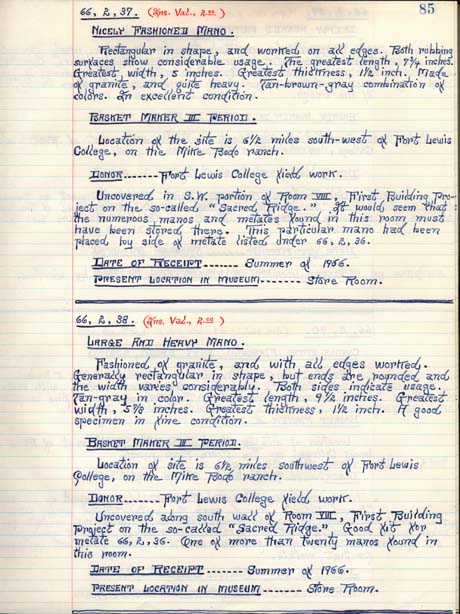 85
66, 2, 37. (Ins. Val., 2.00)
NICELY FASHIONED MANO.
Rectangular in shape, and worked on all edges. Both rubbing
surfaces show considerable usage. The greatest length, 7¼ inches.
Greatest, width, 5 inches. Greatest thickness, 1½ inch. Made
of granite, and quite heavy. Tan-brown-gray combination of
colors. In excellent condition.
BASKET MAKER III PERIOD.
Location of the site is 6½ miles south-west of Fort Lewis
College, on the Mike Bodo ranch.
DONOR------Fort Lewis College field work.
Uncovered in S.W. portion of Room VIII, First Building Pro-
ject on the so-called "Sacred Ridge." It would seem that
the numerous manos and metates found in this room must
have been stored there. This particular mano had been
placed by side of metate listed under 66, 2, 36.
DATE OF RECEIPT------- Summer of 1966.
PRESENT LOCATION IN MUSEUM------- Store Room.
66, 2, 38. (Ins. Val., 2.00)
LARGE AND HEAVY MANO.
Fashioned of granite, and with all edges worked.
Generally rectangular in shape, but ends are rounded and
the width varies considerably. Both sides indicate usage.
Tan-gray in color. Greatest length, 9½ inches. Greatest
width, 5⅞ inches. Greatest thickness, 1½ inch. A good
specimen in fine condition.
BASKET MAKER III PERIOD.
Location of site is 6½ miles southwest of Fort Lewis
College, on the Mike Bodo ranch.
DONOR------Fort Lewis College field work.
Uncovered along south wall of Room VIII, First Building
Project on the so-called "Sacred Ridge." Good fit for
metate 66, 2, 36. One of more than twenty manos found in
this room.
DATE OF RECEIPT ------- Summer of 1966.
PRESENT LOCATION IN MUSEUM ------- Store Room.